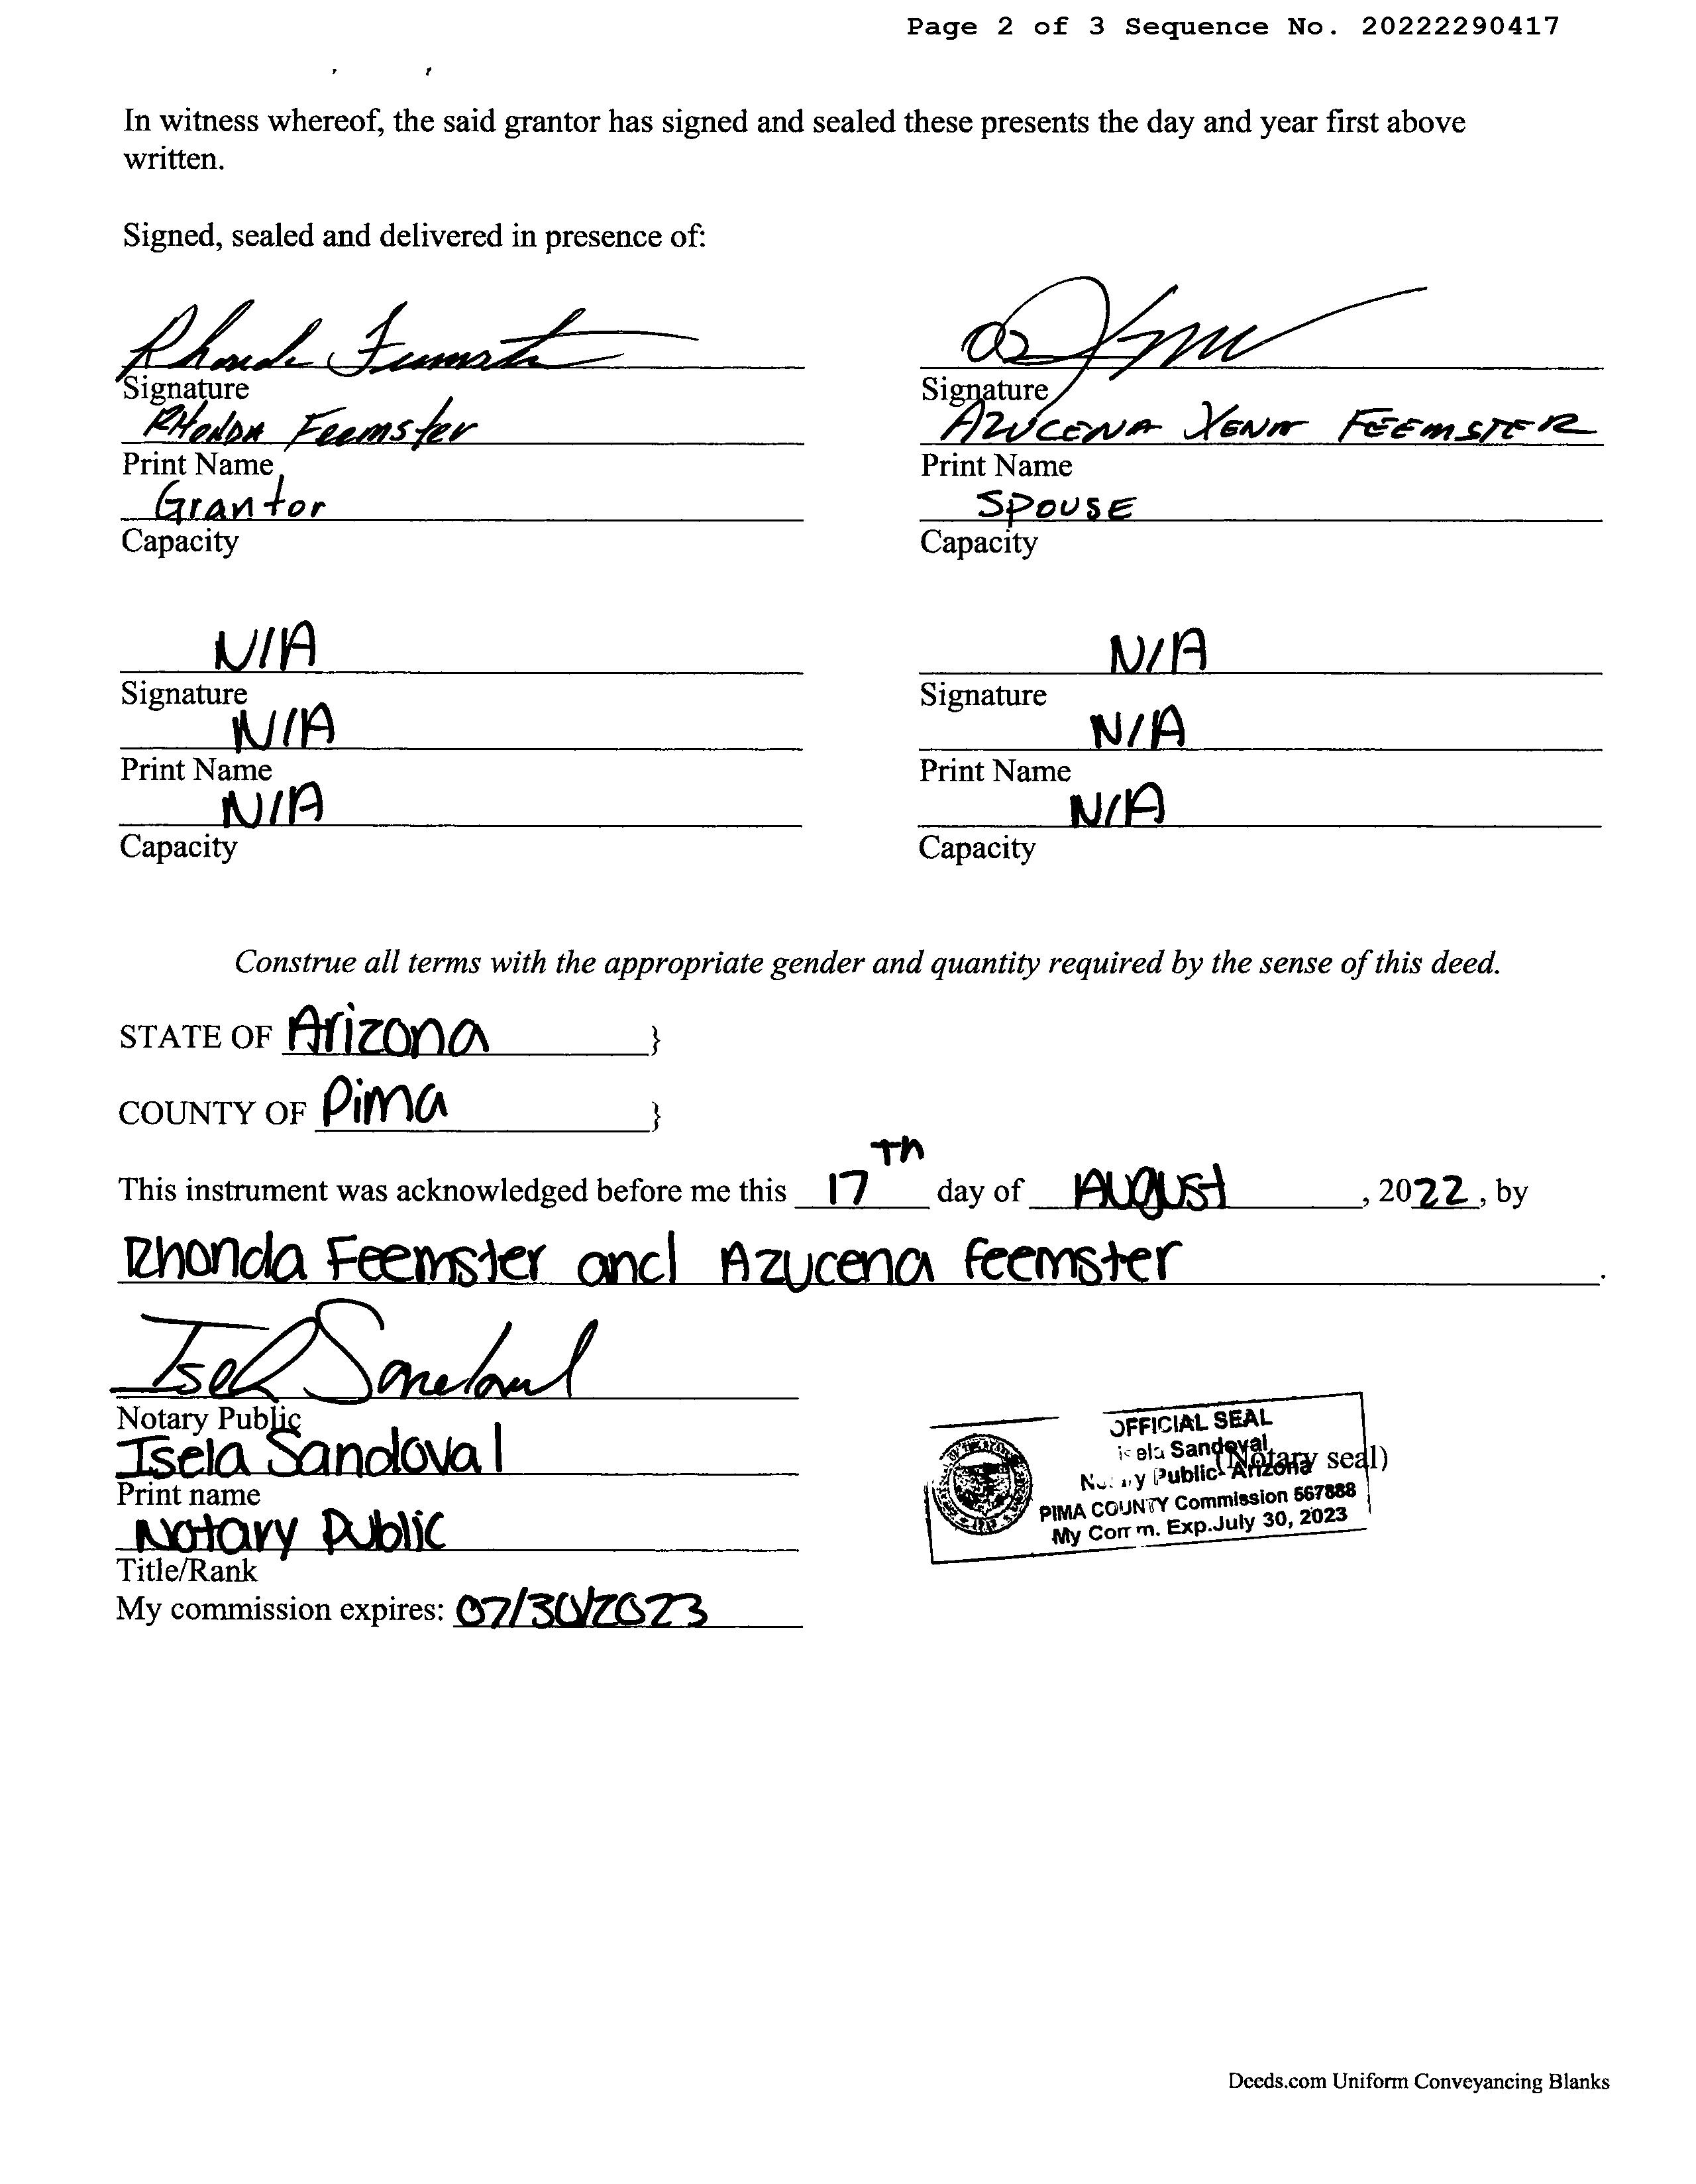 Page 2 of 3 Sequence No. 20222290417
In witness whereof, the said grantor has signed and sealed these presents the day and year first above
written.
Signed, sealed and delivered in presence of:
Rhonda Feemster
Signature Signature
RHONDA Feemster AZUCENA XENA FEEMSTER
Print Name Print Name
Grantor SPOUSE
Capacity Capacity
N/A N/A
Signature Signature
N/A N/A
Print Name Print Name
N/A N/A
Capacity Capacity
Construe all terms with the appropriate gender and quantity required by the sense of this deed.
STATE OF Arizona }
COUNTY OF Pima }
This instrument was acknowledged before me this 17Th day of AUGUSt , 2022 , by
Rhonda Feemster and Azucena feemster .
Isela Sandoval
Notary Public
Isela Sandoval
Print name
Notary Public
Title/Rank
My commission expires: 07/30/2023
OFFICIAL SEAL
Isela Sandoval
(Notary seal)
Notary Public- Arizona
PIMA COUNTY Commission 567888
My Comm. Exp.July 30, 2023
Deeds.com Uniform Conveyancing Blanks